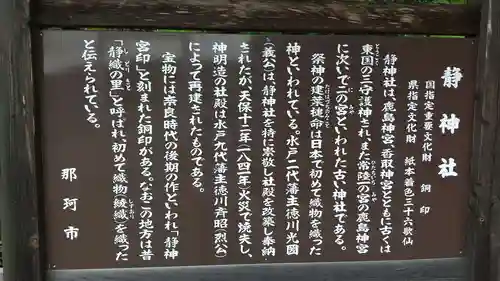 静神社
国指定重要文化財 銅印
県指定文化財 紙本着色三十六歌仙
静神社は、鹿島神宮、香取神宮とともに古くは
東国の三守護神とされ、また常陸一の宮の鹿島神宮
に次いで二の宮といわれた古い神社である。
祭神の建葉槌命は日本で初めて織物を織った
神といわれている。水戸二代藩主徳川光圀
(義公)は、静神社を特に崇敬し社殿を改築し奉納
されたが、天保十二年(一八四一年)火災で焼失し、
神明造の社殿は水戸九代藩主徳川斉昭(烈公)
によって再建されたものである。
宝物には奈良時代の後期の作といわれ「静神
宮印」と刻まれた銅印がある。なおこの地方は昔
「静織の里」と呼ばれ、初めて織物(綾織)を織った
と伝えられている。
那珂市